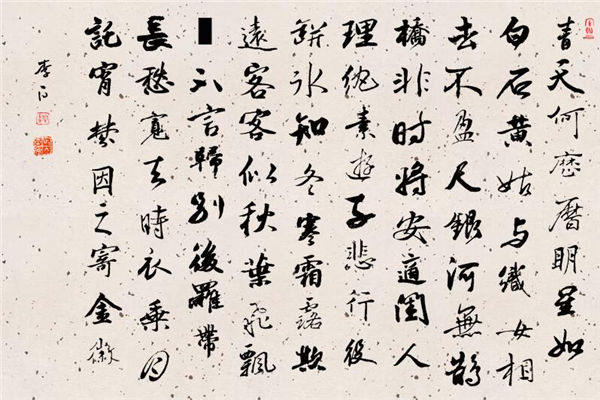 青天何厯曆明星如
白石黄姑与織女相
去不盈尺銀河無鵲
橋非時將安適閨人
理紈素遊子悲行役
缾氷知冬寒霜露欺
遠客客似秋葉飛飄
不言歸別後羅帶
長愁寬去時衣乘月
託宵梦因之寄金徽
李白